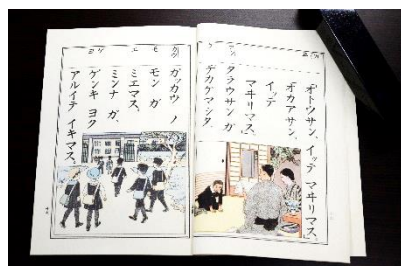 オトウサン、イッテ マヰリマス、
オカアサン、
イッテ
マヰリマス、
タラウサン ガ
デカケマシタ
ガッカウ ノ
モン ガ
ミエマス、
ミンナ ガ、
ゲンキ ヨク
アルイテ イキマス、